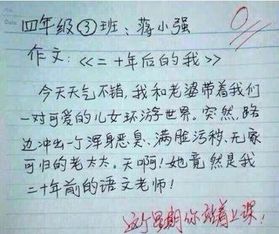 四年级③班:蒋小强
作文:《二十年后的我》
今天天气不错,我和老婆带着我们
一对可爱的儿女环游世界。突然,路
边冲出一个浑身恶臭、满脏污秽、无家
可归的老太太。天啊!她竟然是我
二十年前的语文老师!
这个星期你站着上课!
0